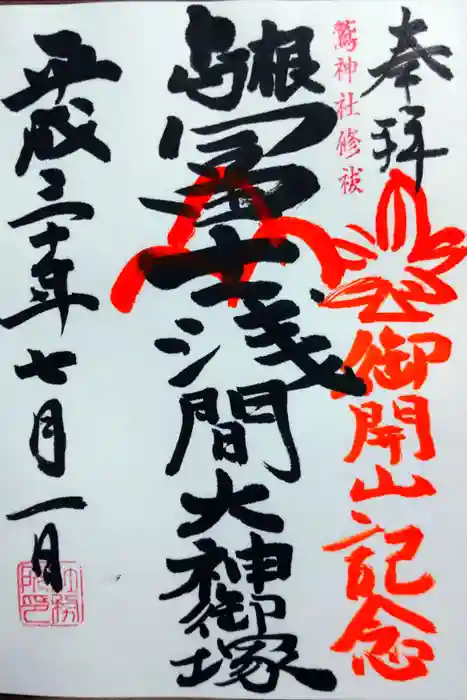 奉拝
鷲神社修祓
御開山記念
島根
冨士浅間大神御塚
平成三十年七月一日
社務所印